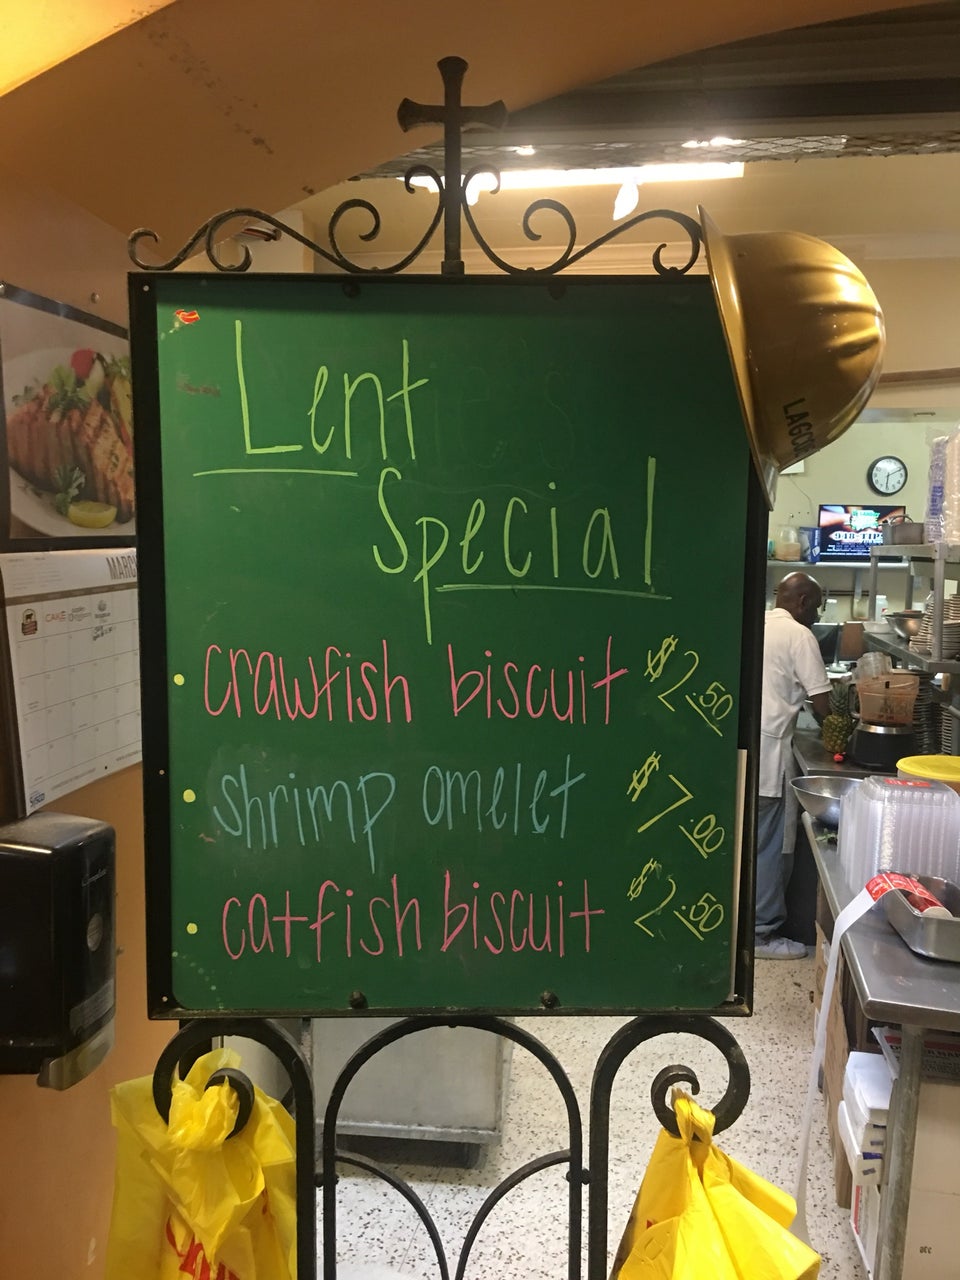 Lent
Special
crawfish biscuit $2.50
shrimp omelet $7.00
catfish biscuit $2.50
CAKE
Sysco